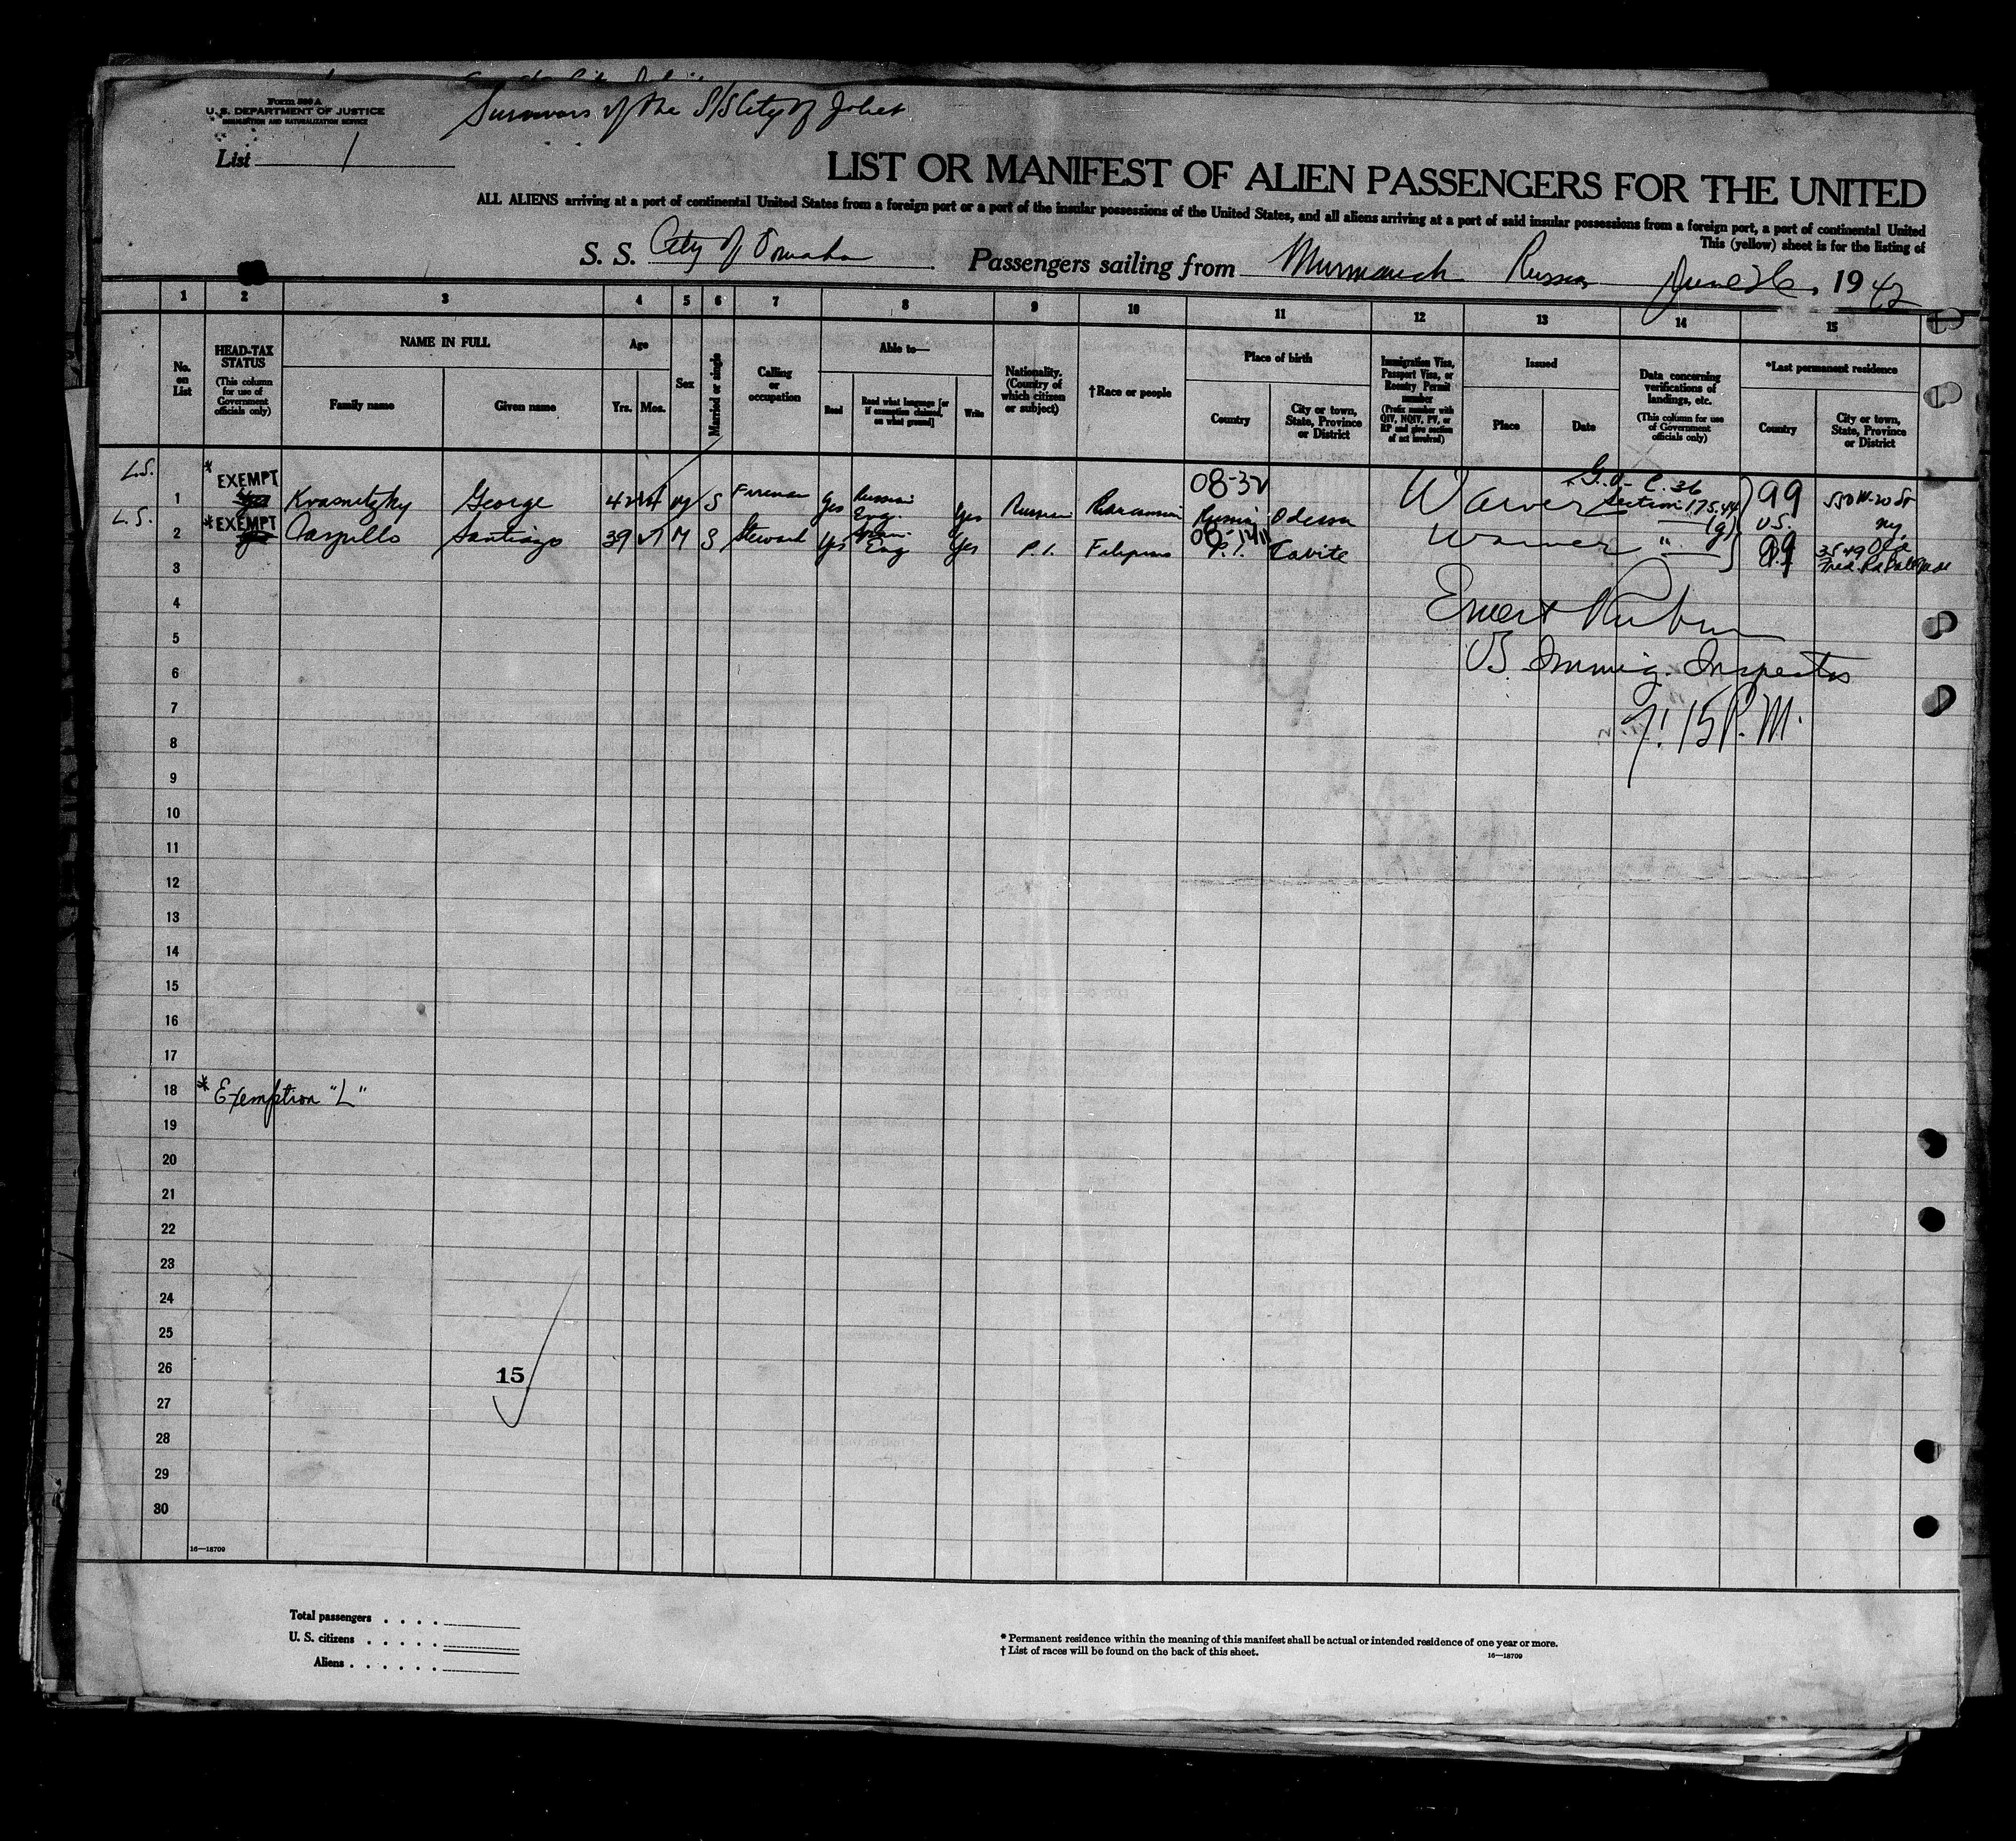 Form 500 A
U. S. DEPARTMENT OF JUSTICE
IMMIGRATION AND NATURALIZATION SERVICE
Survivors of the S/S City of Joliet
List 1
LIST OR MANIFEST OF ALIEN PASSENGERS FOR THE UNITED
ALL ALIENS arriving at a port of continental United States from a foreign port or a port of the insular possessions of the United States, and all aliens arriving at a port of said insular possessions from a foreign port, a port of continental United
This (yellow) sheet is for the listing of
S. S. City of Omaha Passengers sailing from Murmansk Russia June 26, 1942
1 2 3 4 5 6 7 8 9 10 11 12 13 14 15
No. on List
HEAD-TAX STATUS
(This column for use of Government officials only)
NAME IN FULL
Family name
Given name
Age
Yrs. Mos.
Sex
Married or single
Calling or occupation
Able to—
Read
Read what language [or if exemption claimed, on what ground]
Write
Nationality. (Country of which citizen or subject)
†Race or people
Place of birth
Country
City or town, State, Province or District
Immigration Visa, Passport Visa, or Reentry Permit number
(Prefix number with QIV, NQIV, PV, or RP and give section of act involved)
Issued
Place
Date
Data concerning verifications of landings, etc.
(This column for use of Government officials only)
*Last permanent residence
Country
City or town, State, Province or District
L.S. * EXEMPT 08-32 99
1 Krasnitzky George 42 M S Fireman Yes Russian Eng. Yes Russian Russia Odessa Waiver Section 175.44 (g) U.S. 550 W. 20 St N.Y.
L.S. * EXEMPT
2 Santiago 39 M S Steward Yes Eng Yes P.I. Filipino P.I. Cavite Waiver " 99
3
4
5
U.S. Immig. Inspector
6
7
7:15 P.M.
8
9
10
11
12
13
14
15
16
17
18 * Exemption "L"
19
20
21
22
23
24
25
26
15
27
28
29
30
16—18709
Total passengers . . . .
U. S. citizens . . . . .
Aliens . . . . . .
* Permanent residence within the meaning of this manifest shall be actual or intended residence of one year or more.
† List of races will be found on the back of this sheet.
16—18709